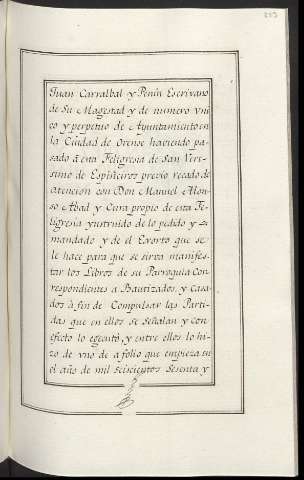 Juan Carralbal y Penin Escrivano
de Su Magestad y de numero vni
co y perpetuo de Ayuntamiento en
la Ciudad de Orense haviendo pa-
sado à esta Feligresia de San Veris-
simo de Espiñeiros previo recado de
atencion con Don Manuel Alon-
so Abad y Cura propio de esta Fe-
ligresia ynstruido de lo pedido y
mandado y de el Exorto que se
le hace para que se sirva manifes-
tar los Libros de su Parroquia Cor-
respondientes a Bautizados y Casa-
dos à fin de Compulsar las Parti-
das que en ellos se Señalan y con
efecto lo egecutó, y entre ellos lo hi-
zo de vno de a folio que empieza en
el año de mil Seiscientos Sesenta y